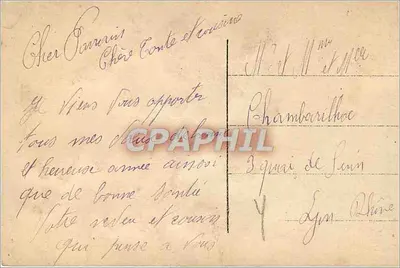 Cher Parrain
Chère Tante et cousine
Je viens vous apporter
tous mes vœux de bonne
et heureuse année ainssi
que de bonne santée
Votre neveu et cousin
qui pense a vous
Mr et Mme
et Mlle
Chambarilhac
3 quai de
Lyon Rhône
CPAPHIL